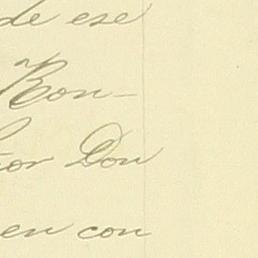 de ese
Ron-
ñor Don
en con